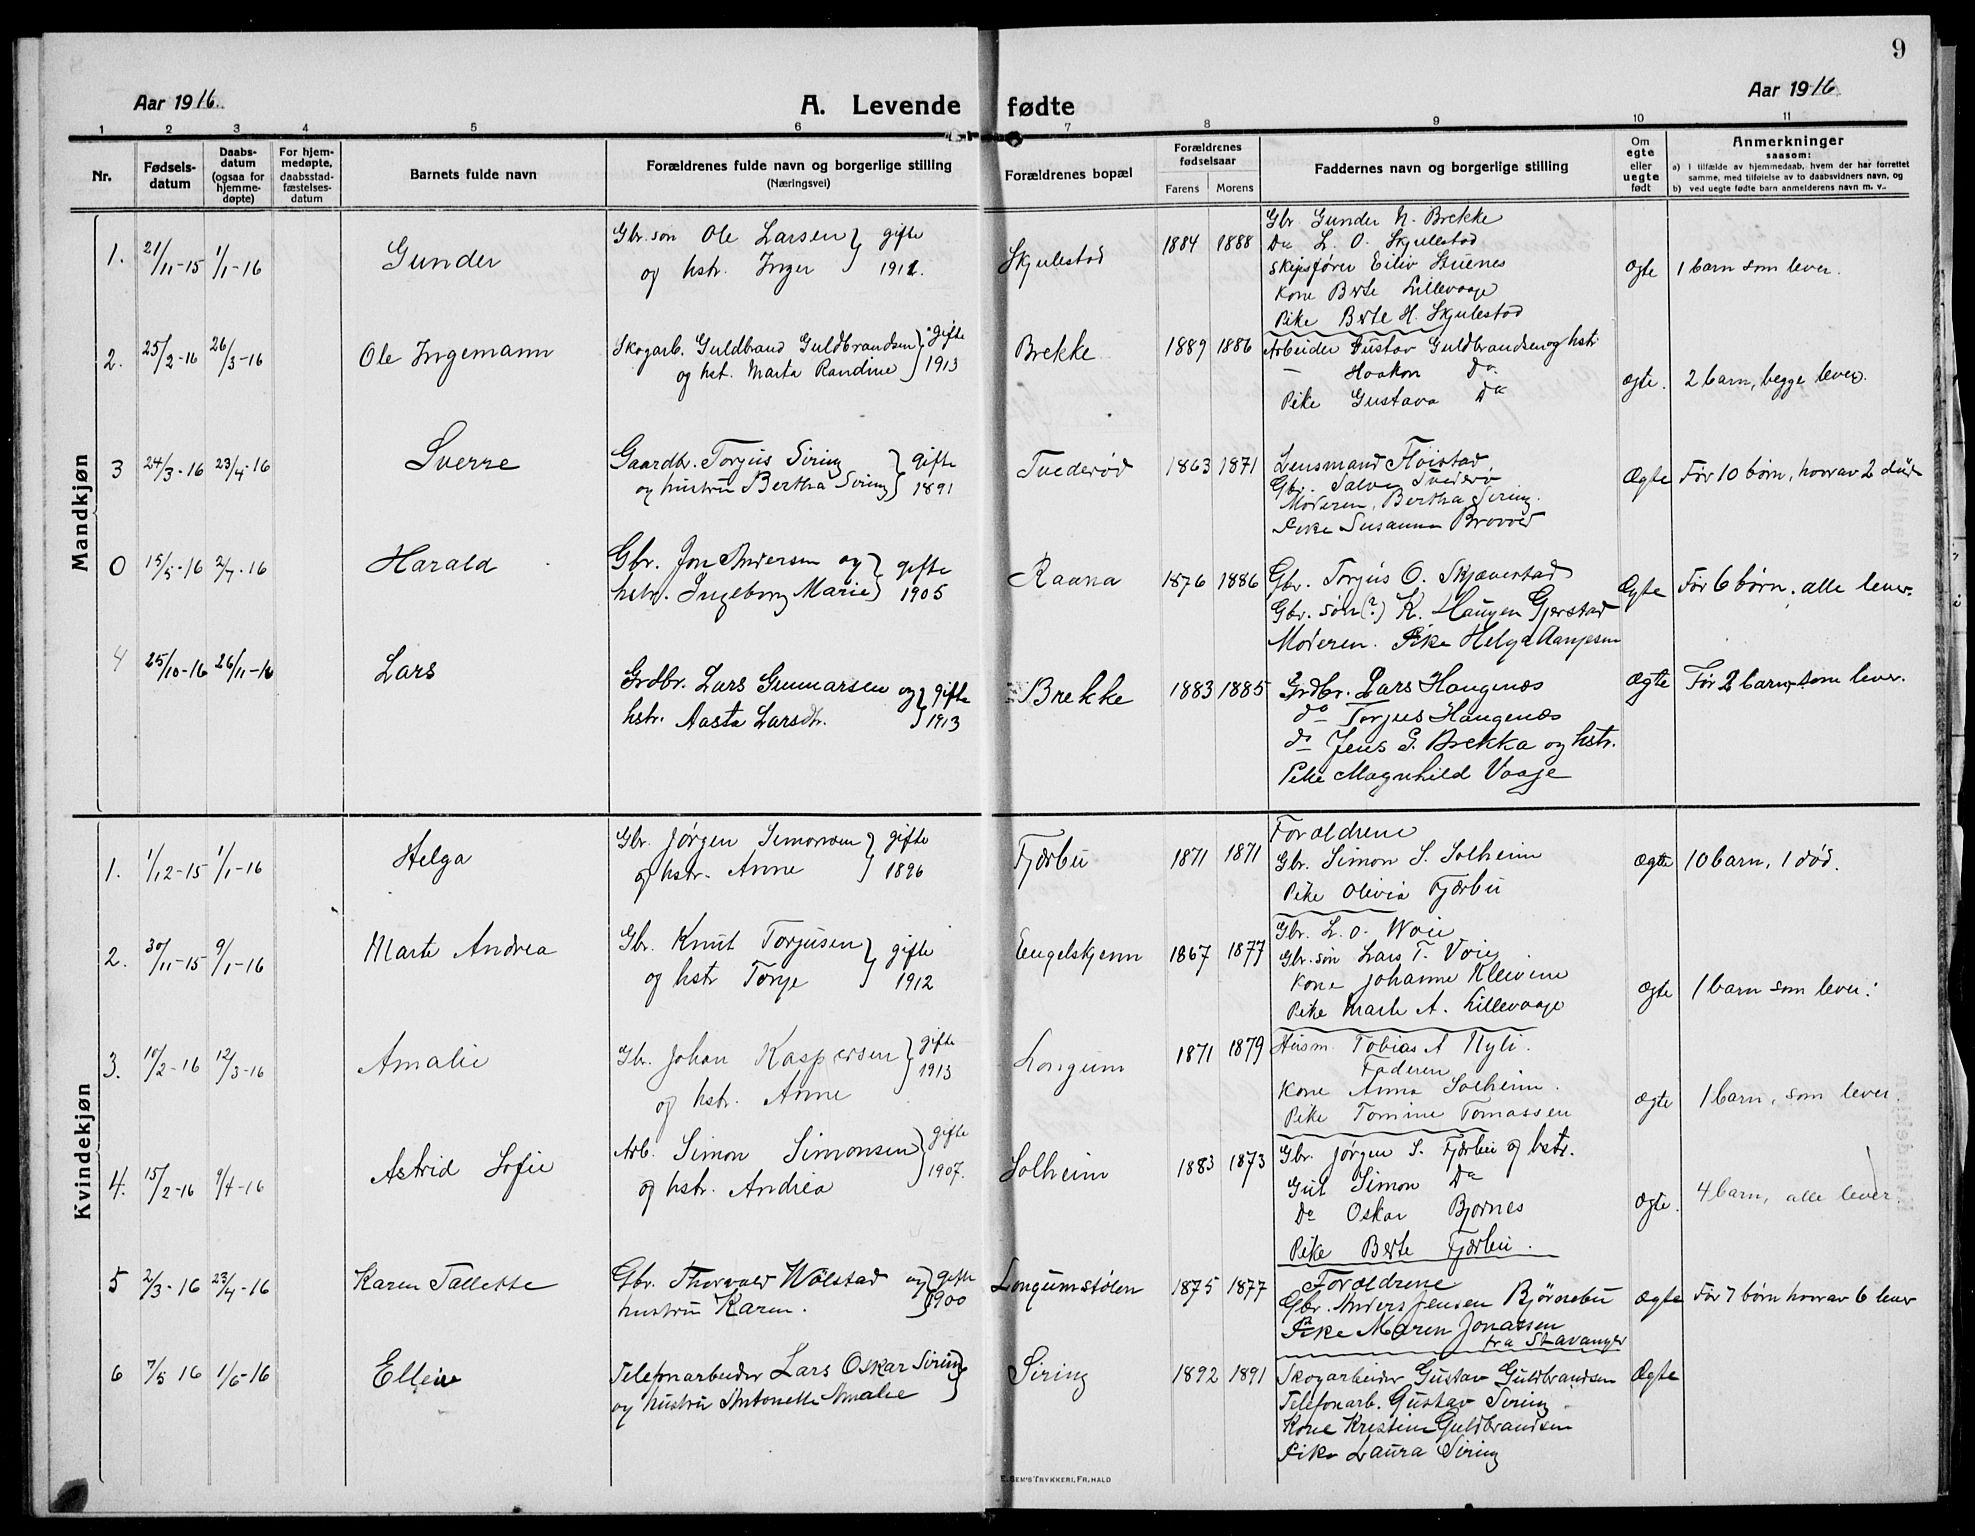 9
Aar 1916.
A. Levende fødte
Aar 1916.
1 2 3 4 5 6 7 8 9 10 11
Nr.
Fødsels-
datum
Daabs-
datum
(ogsaa for
hjemme-
døpte)
For hjem-
medøpte,
daabsstad-
fæstelses-
datum
Barnets fulde navn
Forældrenes fulde navn og borgerlige stilling
(Næringsvei)
Forældrenes bopæl
Forældrenes
fødselsaar
Farens Morens
Faddernes navn og borgerlige stilling
Om
egte
eller
uegte
født
Anmerkninger
saasom:
a) I tilfælde av hjemmedaab, hvem der har forrettet
samme, med tilføielse av to daabsvidners navn, og
b) ved uegte fødte barn anmelderens navn m. v.
Mandkjøn
1. 21/11-15 1/1-16 Gunder
Gbr. søn Ole Larsen } gifte
og hstr. Inger } 1912.
Skjulestad 1884 1888
Gbr Gunder N. Brekke
Do L. O. Skjulestad
Skipsfører Eiliv Stuenes
Kone Berte Lillevaage
Pike Berte H. Skjulestad
Ægte 1 barn som lever.
2. 25/2-16 26/3-16 Ole Ingemann
Skogarb. Guldbrand Guldbrandsen } gifte
og hst. Marta Randine } 1913
Brekke 1889 1886
Arbeider Gustav Guldbrandsen og hstr
— Haakon Do
Pike Gustava Do
Ægte. 2 barn, begge lever.
3 24/3-16 23/4-16 Sverre
Gaardbr. Torjus Siring } gifte
og hustru Bertha Siring } 1891
Tvederød 1863 1871
Lensmand Fløistad
Gbr. Salve Tvederø
Moderen, Bertha Siring.
Pike Susanna
Ægte Før 10 børn, hvorav 2 död
0 15/5-16 2/7-16 Harald
Gbr. Jon Andersen og } gifte
hstr. Ingeborg Marie } 1905
Raana 1876 1886
Gbr. Torjus O. Skjævestad
Gbr. søn (?) K. Haugen Gjerstad
Moderen. Pike Helga Aanesen
Ægte Før 6 børn, alle lever.
4 25/10-16 26/11-16 Lars
Grdbr. Lars Gunnarsen og } gifte
hstr. Aasta Larsdtr. } 1913
Brekke 1883 1885
Grdbr. Lars Haugenæs
do Torjus Haugenæs
do Jens G. Brekka og hstr.
Pike Magnhild Vaaje
Ægte Før 2 barn, som lever.
Kvindekjøn
1. 1/12-15 1/1-16 Helga
Gbr. Jørgen Simonsen } gifte
og hstr. Anne } 1896
Fjærbu 1871 1871
Forældrene
Gbr. Simon S. Solheim
Pike Olivia Fjærbu
Ægte 10 barn, 1 død.
2. 30/11-15 9/1-16 Marte Andrea
Gbr. Knut Torjusen } gifte
og hstr Tonje } 1912
Engelskjenn 1867 1877
Gbr. L. O. Woie
Gbr. søn Lars T. Voie
Kone Johanne Kleivene
Pike Marte A. Lillevaage
Ægte 1 barn som lever.
3. 10/2-16 12/3-16 Amalie
Gbr. Johan Kaspersen } gifte
og hstr. Anne } 1913
Longum 1871 1879
Husm. Tobias A Myli.
Faderen
Kone Anna Solheim.
Pike Tomine Tomassen
Ægte 1 barn, som lever.
4. 15/2-16 9/4-16 Astrid Sofie
Arb. Simon Simonsen } gifte
og hstr. Andrea } 1907.
Solheim 1883 1873
Gbr. Jørgen S. Fjærbu og hstr.
Gut Simon Do
Do Oskar Bjornes
Pike Berte Fjærbu.
Ægte. 4 barn, alle lever.
5 2/3-16 23/4-16 Karen Tallette
Gbr. Thorvald Wølstad og } gifte
hustru Karen. } 1900
Longumstølen 1875 1877
Forældrene
Gbr. Anders Jensen Bjørnebu
Pike Maren Jonassen
fra Stavanger
Ægte Før 7 børn hvorav 6 lever
6 7/5 16 1/6-16 Ellen
Telefonarbeider Lars Oskar Siring }
og hustru Antonette Amalie }
Siring 1892 1891
Skogarbeider Gustav Guldbrandsen
Telefonarb. Gustav Siring
Kone Kristine Guldbrandsen
Pike Laura Siring
Ægte
E. SEM'S TRYKKERI, FR.HALD